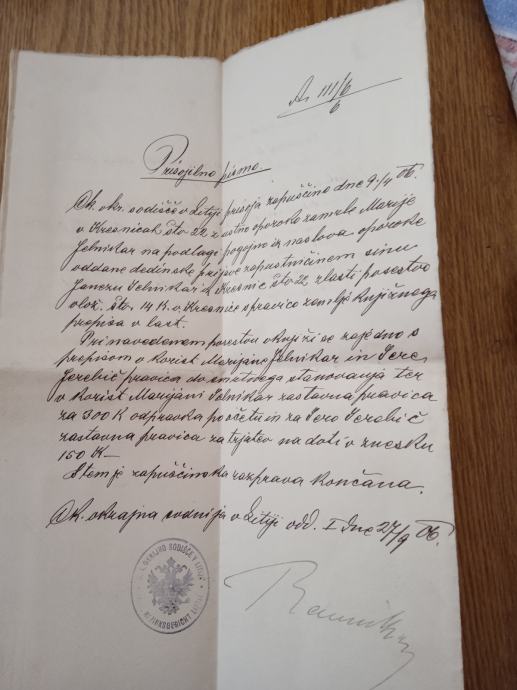 A. III/6
6
Prisojilno pismo.
Ok. okr. sodišče v Litiji prisoja zapuščino dne 9./4 06.
v Kresnicah štv 22 z ustno oporoko zamrle Marije
Jelnikar na podlagi pogojno iz naslova oporoke
oddane dedinske prijave zapustničinem sinu
Janezu Jelnikar iz Kresnic štv 22, zlasti posestvo
vlož. štv. 14 K. o. Kresnice s pravico zemlje knjižnega
prepisa v last.
Pri navedenem posestvu vknjiži se zajedno s
prepisom v korist Marijane Jelnikar in Jere
Jerebič pravica do smrtnega stanovanja ter
v korist Marijani Jelnikar zastavna pravica
za 300 K odpravka po očetu in za Jero Jerebič
zastavna pravica za terjatev na doti v znesku
150 K—
S tem je zapuščinska razprava končana.
Ok. okrajna sodnija v Litiji odd. I dne 27/9 06.
OKRAJNO SODIŠČE V LITIJI
BEZIRKSGERICHT LITTAI